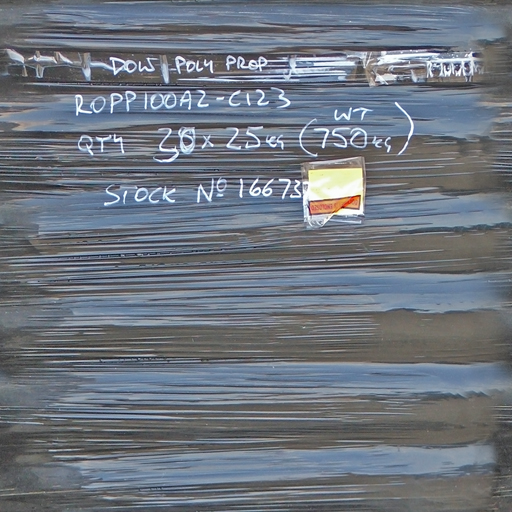 DOW POLY PROP
ROPP100A2-C123
QTY 30 x 25KG (WT 750KG)
STOCK Nº 16673